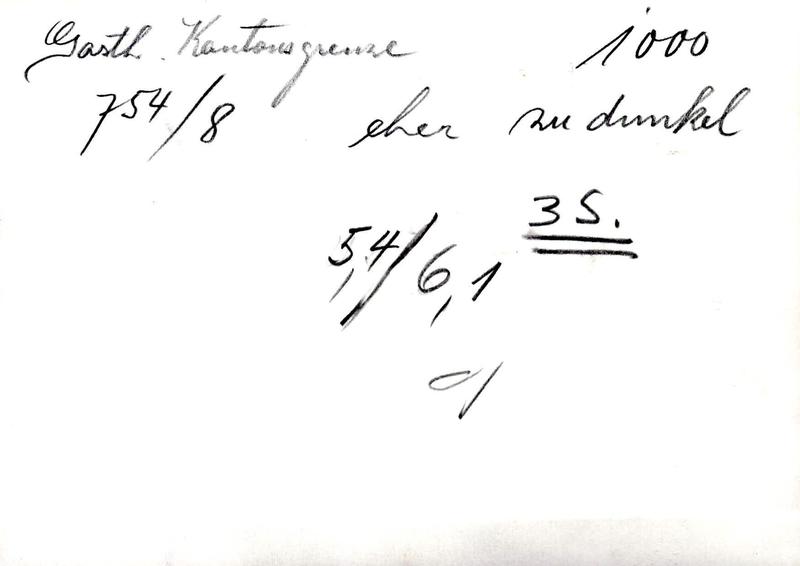 Gasth. Kantonsgrenze 1000
7⁵⁴/8 eher zu dunkel
3 S.
5,4/6,1